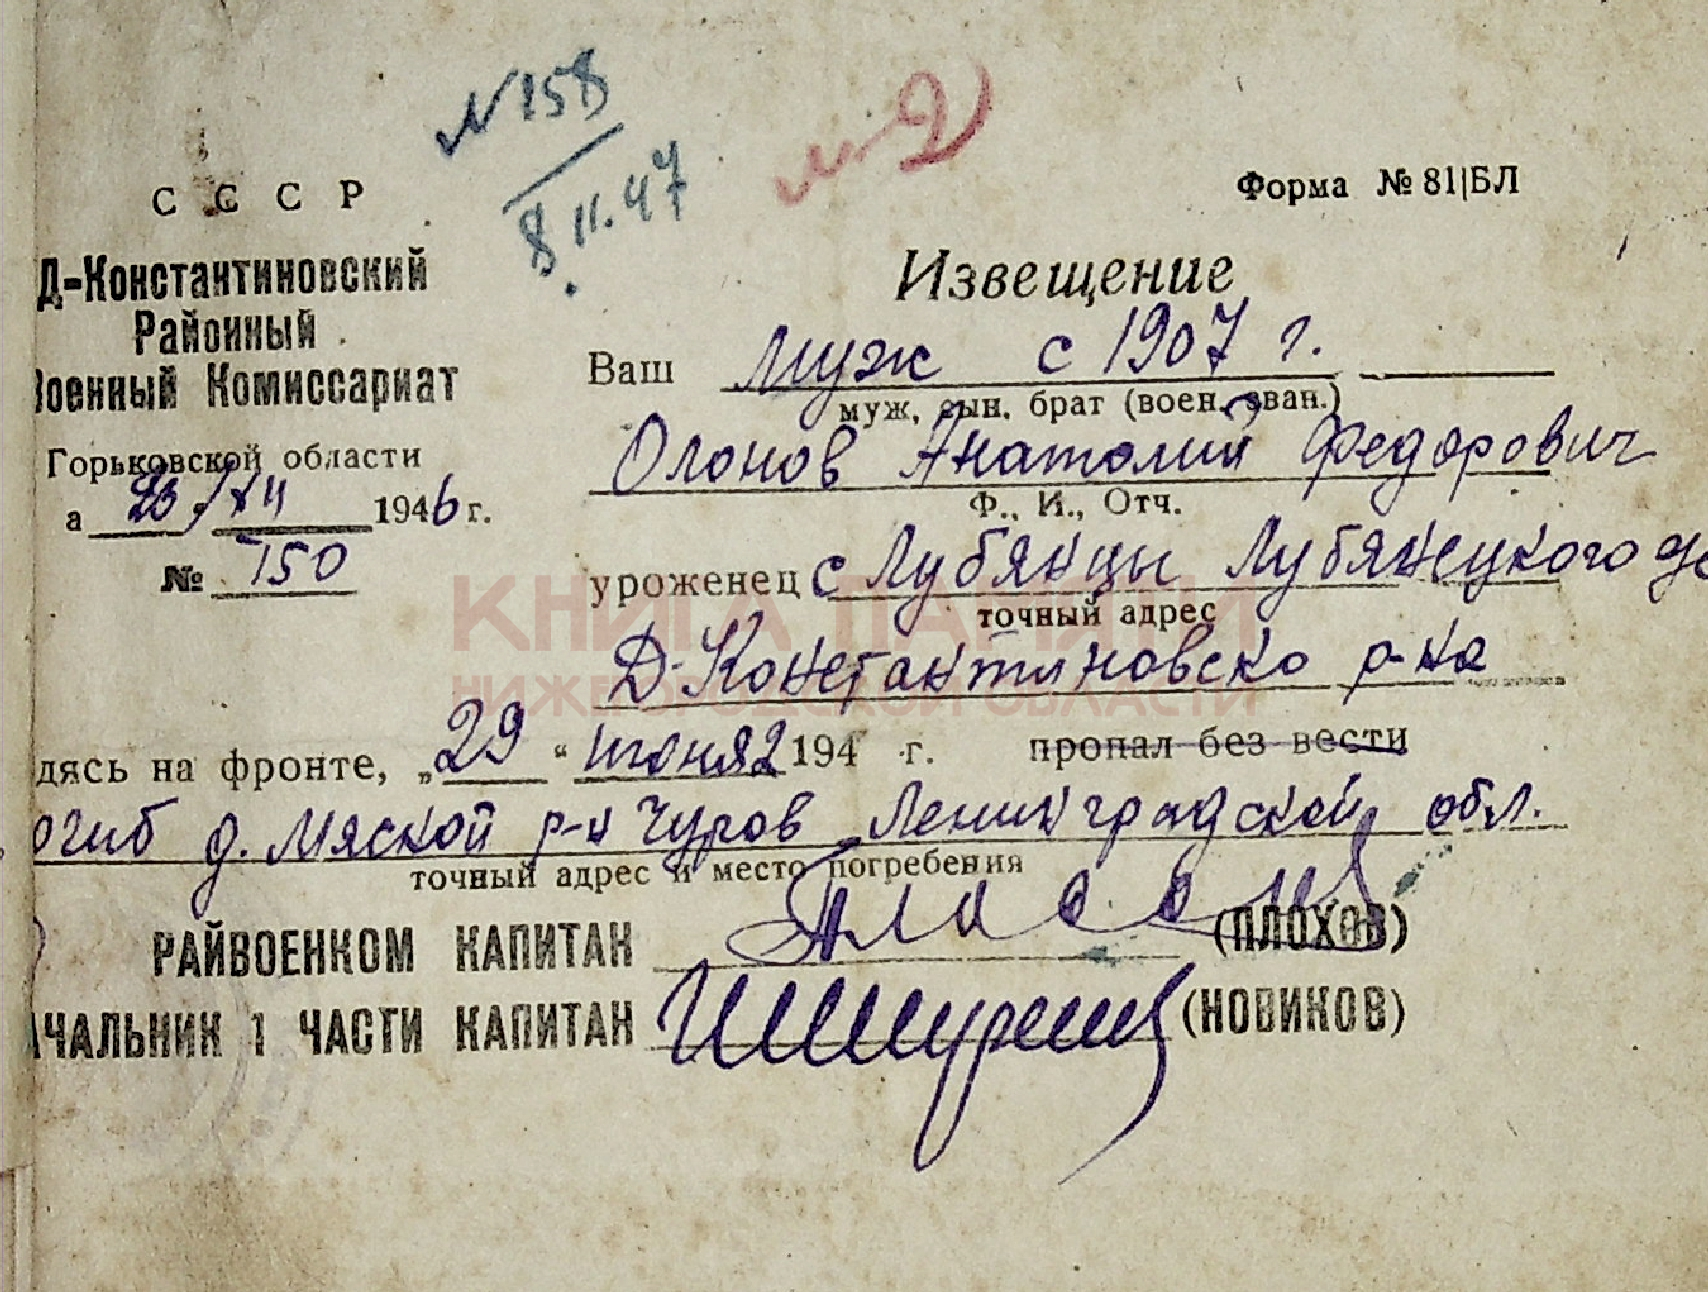 № 158
8.II.47
С С С Р
Форма № 81|БЛ
Д-Константиновский
Районный
Военный Комиссариат
Горьковской области
а 23/XII 1946 г.
№ 150
Извещение
Ваш муж с 1907 г.
муж, сын, брат (воен. зван.)
Олонов Анатолий Федорович
Ф., И., Отч.
уроженец с Лубянцы Лубянецкого
точный адрес
Д-Константиновско р-на
КНИГА ПАМЯТИ
НИЖЕГОРОДСКОЙ ОБЛАСТИ
дясь на фронте, „29“ июня2 194 г. пропал без вести
огиб д. Мяской р-н Чуров Ленинградской обл.
точный адрес и место погребения
РАЙВОЕНКОМ КАПИТАН (ПЛОХОВ)
АЧАЛЬНИК 1 ЧАСТИ КАПИТАН (НОВИКОВ)